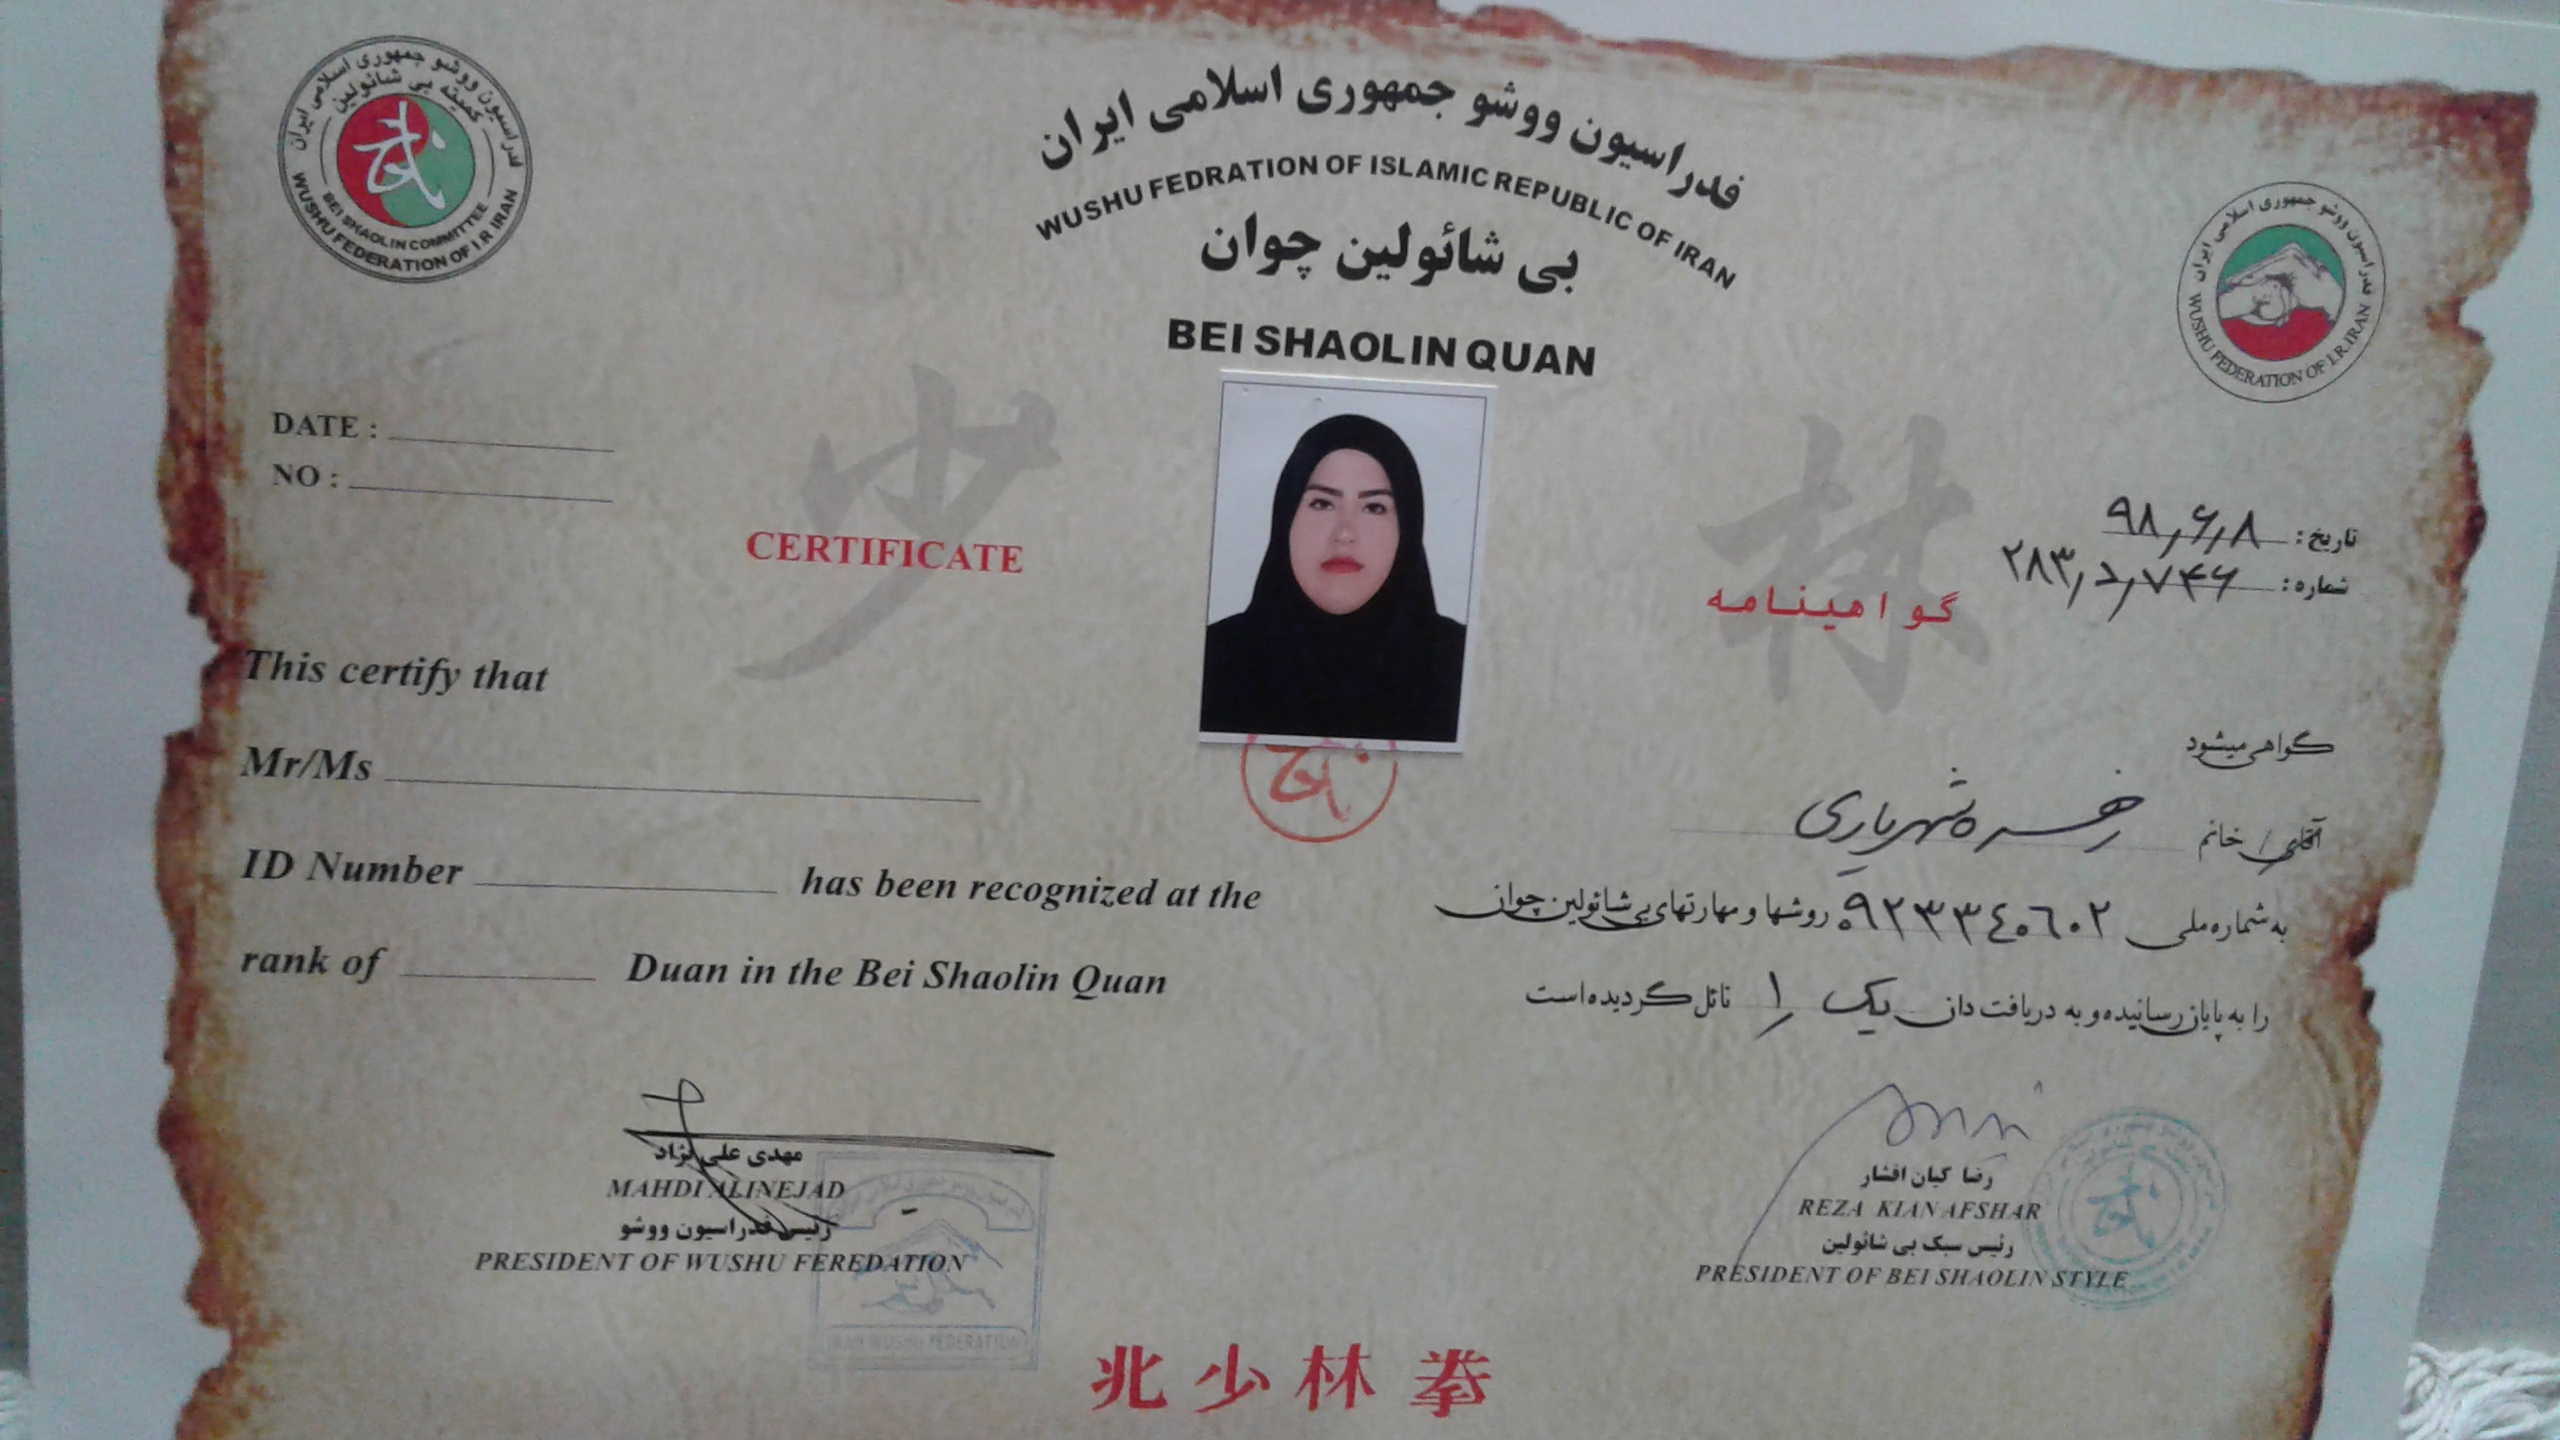 فدراسیون ووشو جمهوری اسلامی ایران
کمیته بی شائولین
BEI SHAOLIN COMMITTEE
WUSHU FEDERATION OF I.R IRAN
فدراسیون ووشو جمهوری اسلامی ایران
WUSHU FEDRATION OF ISLAMIC REPUBLIC OF IRAN
بی شائولین چوان
BEI SHAOLIN QUAN
فدراسیون ووشو جمهوری اسلامی ایران
WUSHU FEDERATION OF I.R.IRAN
少 林
DATE :
NO :
تاریخ : ۹۸,۶,۸
شماره : ۲۸۳,د,۷۴۶
CERTIFICATE
گواهینامه
This certify that
Mr/Ms
ID Number has been recognized at the
rank of Duan in the Bei Shaolin Quan
گواهی میشود
آقای / خانم شهریاری
به شماره ملی ۰۹۲۳۳۴۰۶۰۲ روشها و مهارتهای بی شائولین چوان
را به پایان رسانیده و به دریافت دان یک ۱ نائل گردیده است
مهدی علی نژاد
MAHDI ALINEJAD
رئیس فدراسیون ووشو
PRESIDENT OF WUSHU FEREDATION
IRAN WUSHU FEDERATION
رضا کیان افشار
REZA KIAN AFSHAR
رئیس سبک بی شائولین
PRESIDENT OF BEI SHAOLIN STYLE
北少林拳